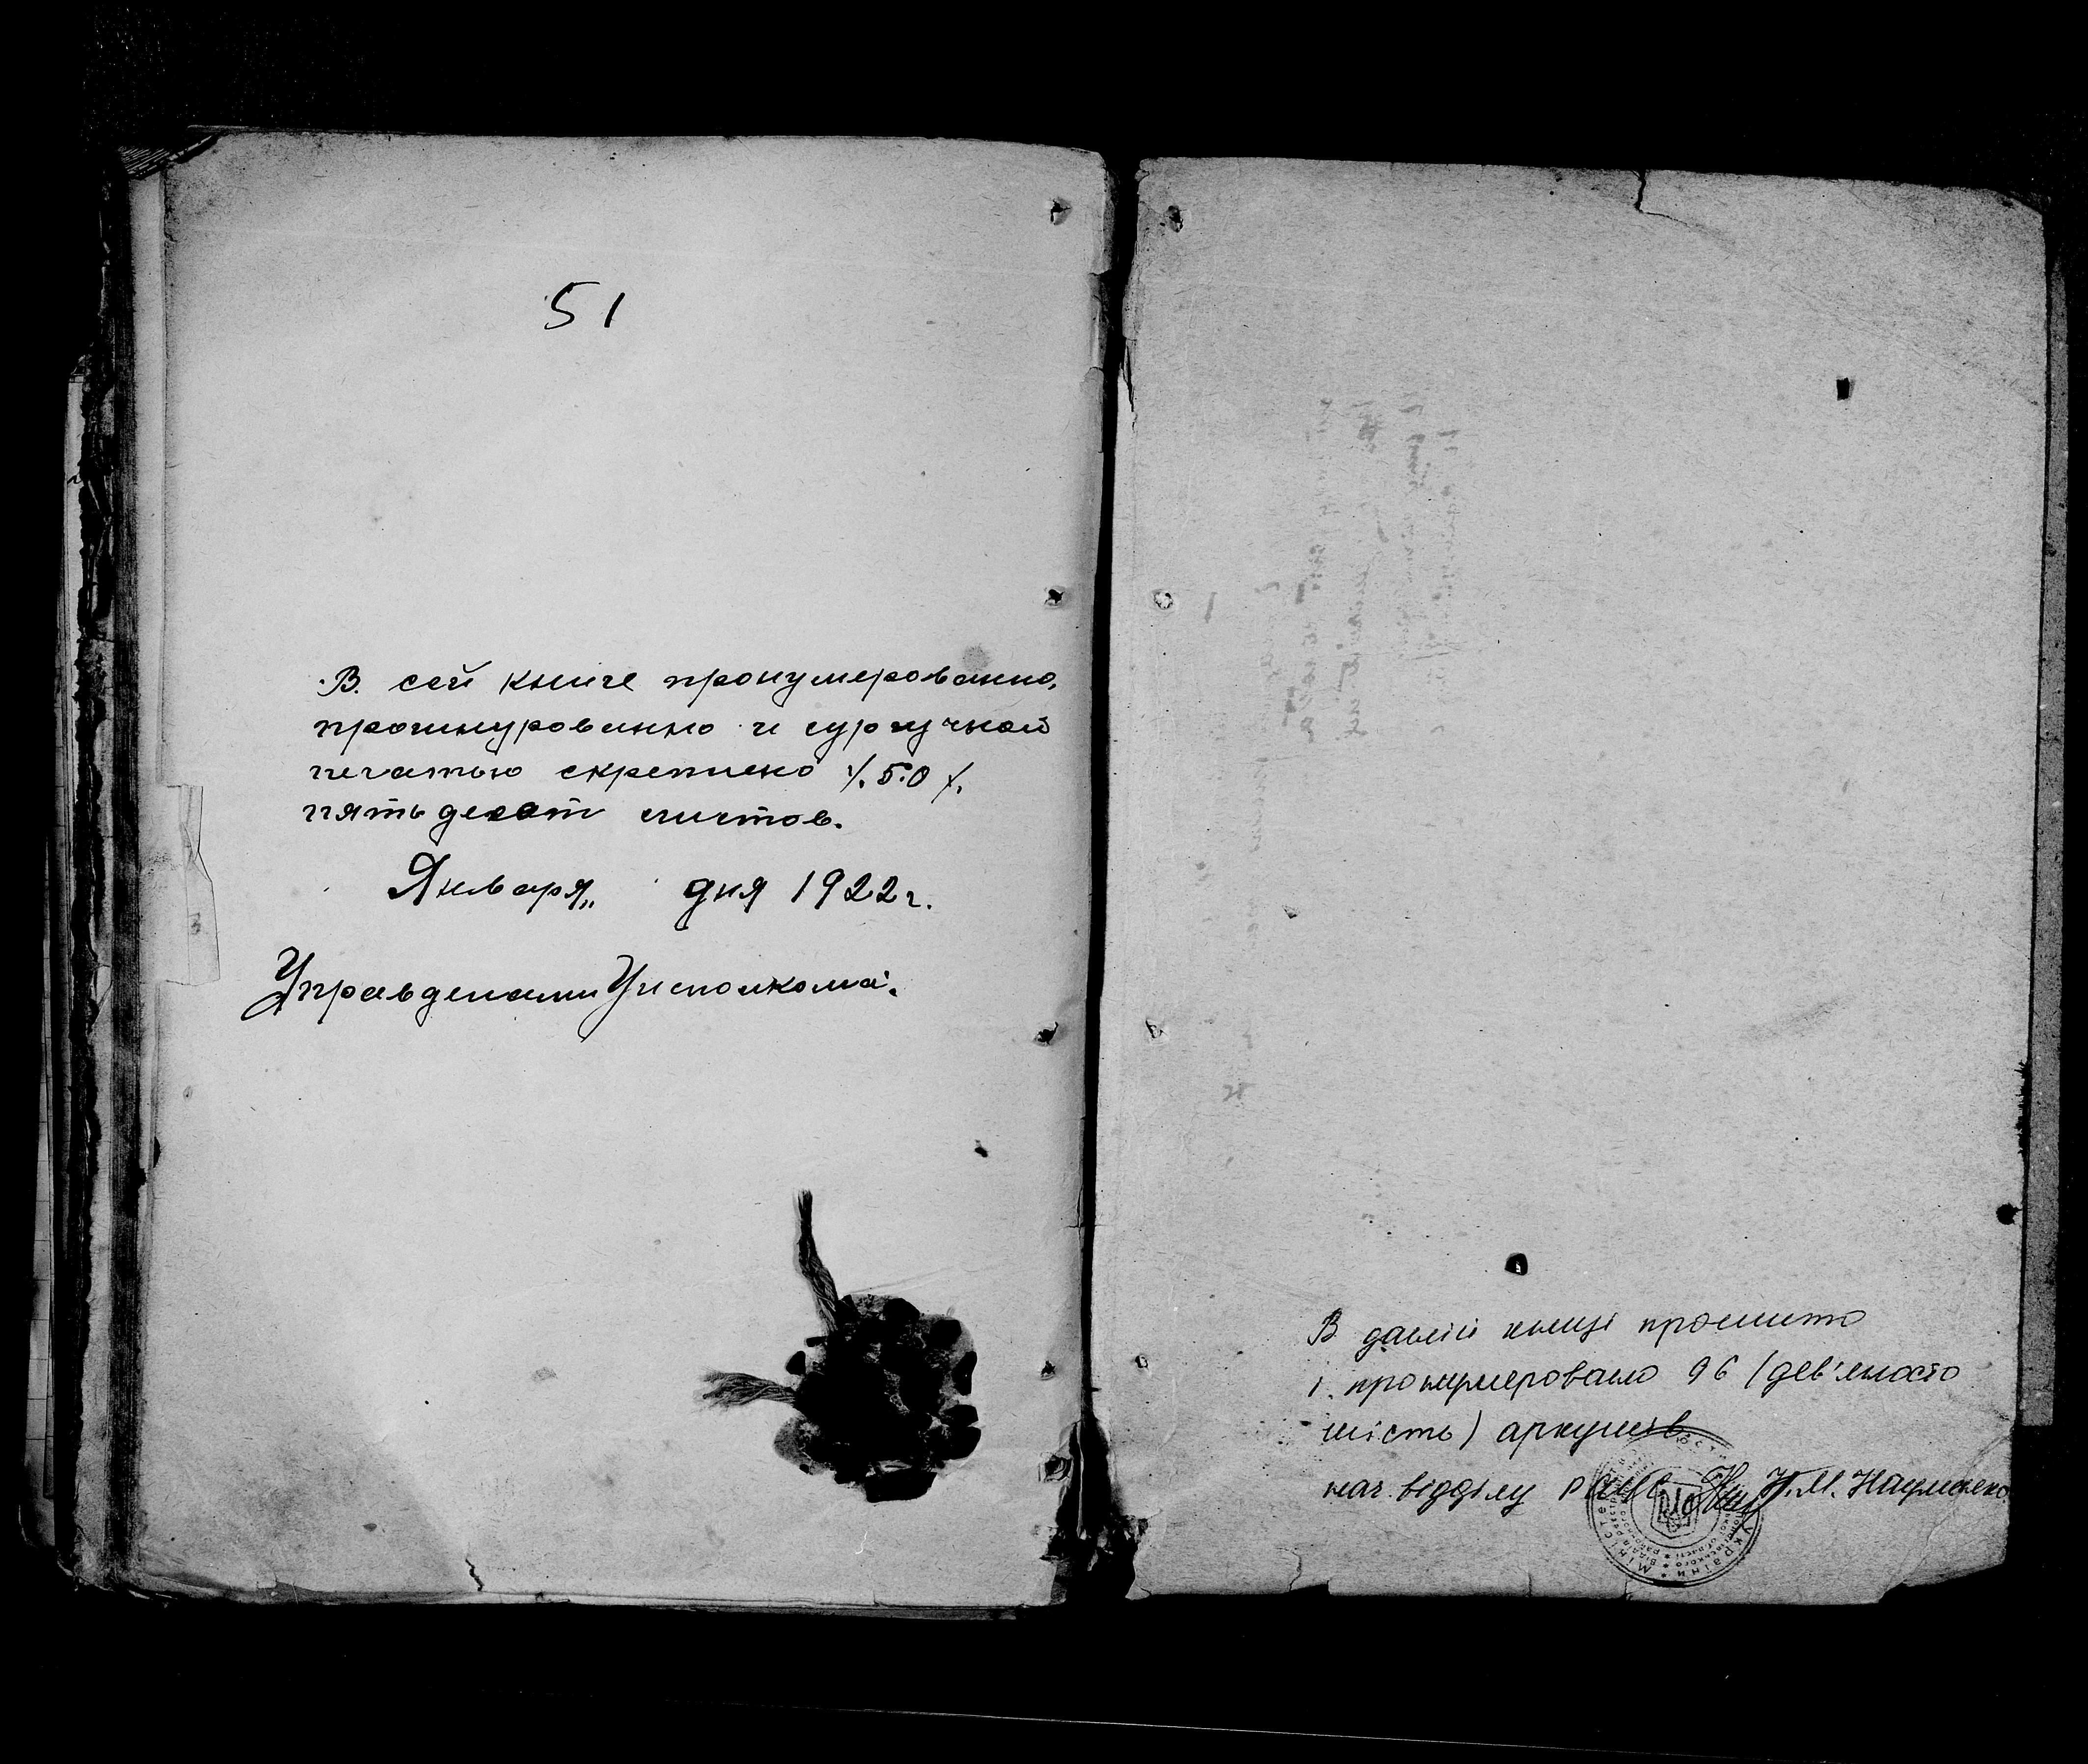 51
В. сей книге пронумерованно,
прошнуровынно и сургучной
печатью скреплено /.50/.
пятьдесят листов.
Января„ дня 1922 г.
Управделами Уисполкома.
В даній книзі прошито
і пронумеровано 96 (дев'яносто
шість) аркушів
нач. відділу рацс Н.М. Науменко